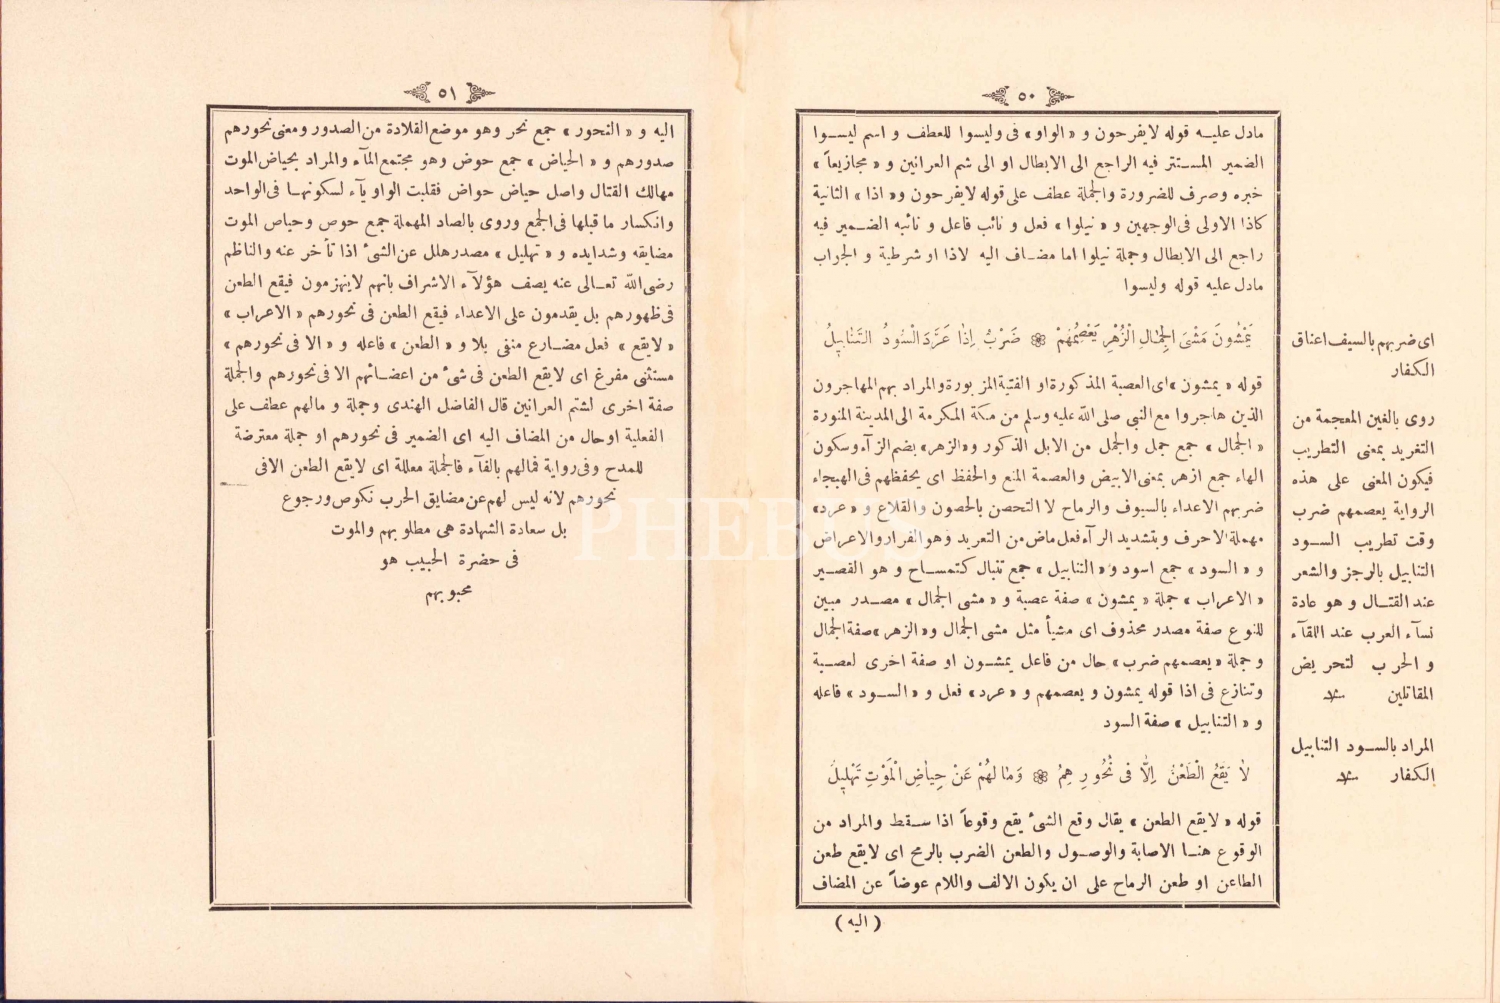 ٥٠
مادل عليه قوله لايفرحون و «الواو» فى وليسوا للعطف و اسم ليسوا
الضمير المستتر فيه الراجع الى الابطال او الى شم العرانين و « مجازيعاً »
خبره وصرف للضرورة والجملة عطف على قوله لايفرحون و« اذا » الثانية
كاذا الاولى فى الوجهين و « نيلوا » فعل و نائب فاعل و نائبه الضمير فيه
راجع الى الابطال وجملة نيلوا اما مضاف اليه لاذا او شرطية و الجراب
مادل عليه قوله وليسوا
يَمْشُونَ مَشْىَ الْجِمَالِ الْزُهْرِ يَعْصِمُهُمْ ❁ ضَرْبٌ اِذَا عَرَّدَ الْسُّودُ التَّنَابِيلُ
قوله « يمشون » اى العصبة المذكورة او الفتية المزبورة والمراد بهم المهاجرون
الذين هاجروا مع النبى صلى الله عليه وسلم من مكة المكرمة الى المدينة المنورة
« الجمال » جمع جمل والجمل من الابل الذكور و«الزهر» بضم الزآء وسكون
الهاء جمع ازهر بمعنى الابيض والعصمة المنع والحفظ اى يحفظهم فى الهيجاء
ضربهم الاعداء بالسيوف والرماح لا التحصن بالحصون والقلاع و « عرد»
مهملة الاحرف وبتشديد الرآء فعل ماض من التعريد وهو الفرار والاعراض
و « السود » جمع اسود و « التنابيل » جمع تنبال كتمساح و هو القصير
« الاعراب » جملة « يمشون » صفة عصبة و « مشى الجمال » مصدر مبين
للنوع صفة مصدر محذوف اى مشيأ مثل مشى الجمال و« الزهر » صفة الجمال
و جملة « يعصمهم ضرب » حال من فاعل يمشون او صفة اخرى لعصبة
وتنازع فى اذا قوله يمشون و يعصمهم و « عرد» فعل و « السود » فاعله
و « التنابيل » صفة السود
لاَ يَقَعُ الْطَعْنُ اِلَّا فى نُحُورِ هِمُ ❁ وَمَا لَهُمْ عَنْ حِيَاضِ الْمَوْتِ تَهْلِيلُ
قوله « لايقع الطعن » يقال وقع الشئ يقع وقوعاً اذا سقط والمراد من
الوقوع هنا الاصابة والوصول والطعن الضرب بالرمح اى لايقع طعن
الطاعن او طعن الرماح على ان يكون الالف واللام عوضاً عن المضاف
( اليه )
اى ضربهم بالسيف اعناق
الكفار
روى بالغين المعجمة من
التغريد بمعنى التطريب
فيكون المعنى على هذه
الرواية يعصمهم ضرب
وقت تطريب السود
التنابيل بالرجز والشعر
عند القتال و هو عادة
نسآء العرب عند اللقآء
و الحرب لتحريض
المقاتلين
المراد بالسود التنابيل
الكفار
٥١
اليه و « النحور » جمع نحر وهو موضع القلادة من الصدور ومعنى نحورهم
صدورهم و « الحياض » جمع حوض وهو مجتمع المآء والمراد بحياض الموت
مهالك القتال واصل حياض حواض فقلبت الواو يآء لسكونها فى الواحد
وانكسار ما قبلها فى الجمع وروى بالصاد المهملة جمع حوص وحياص الموت
مضايقه وشدايده و « تهليل » مصدر هلل عن الشئ اذا تأخر عنه والناظم
رضى الله تعالى عنه يصف هؤلآء الاشراف بانهم لاينهزمون فيقع الطعن
فى ظهورهم بل يقدمون على الاعداء فيقع الطعن فى نحورهم « الاعراب »
« لايقع » فعل مضارع منفى بلا و « الطعن » فاعله و « الا فى نحورهم »
مستثنى مفرغ اى لايقع الطعن فى شئ من اعضائهم الا فى نحورهم والجملة
صفة اخرى لشتم العرانين قال الفاضل الهندى وجملة و مالهم عطف على
الفعلية او حال من المضاف اليه اى الضمير فى نحورهم او جملة معترضة
للمدح وفى رواية فمالهم بالفآء فالجملة معللة اى لايقع الطعن الافى
نحورهم لانه ليس لهم عن مضايق الحرب نكوص ورجوع
بل سعادة الشهادة هى مطلوبهم والموت
فى حضرة الحبيب هو
محبوبهم
PHEBUS